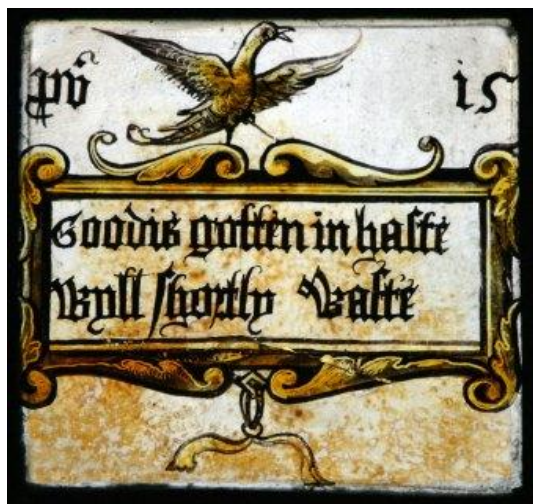 pv̄ 15
Goodis gotten in haste
Wyll shortly Waste